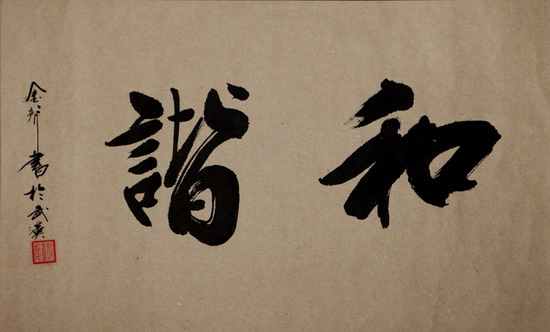 和諧
金邦書於武漢